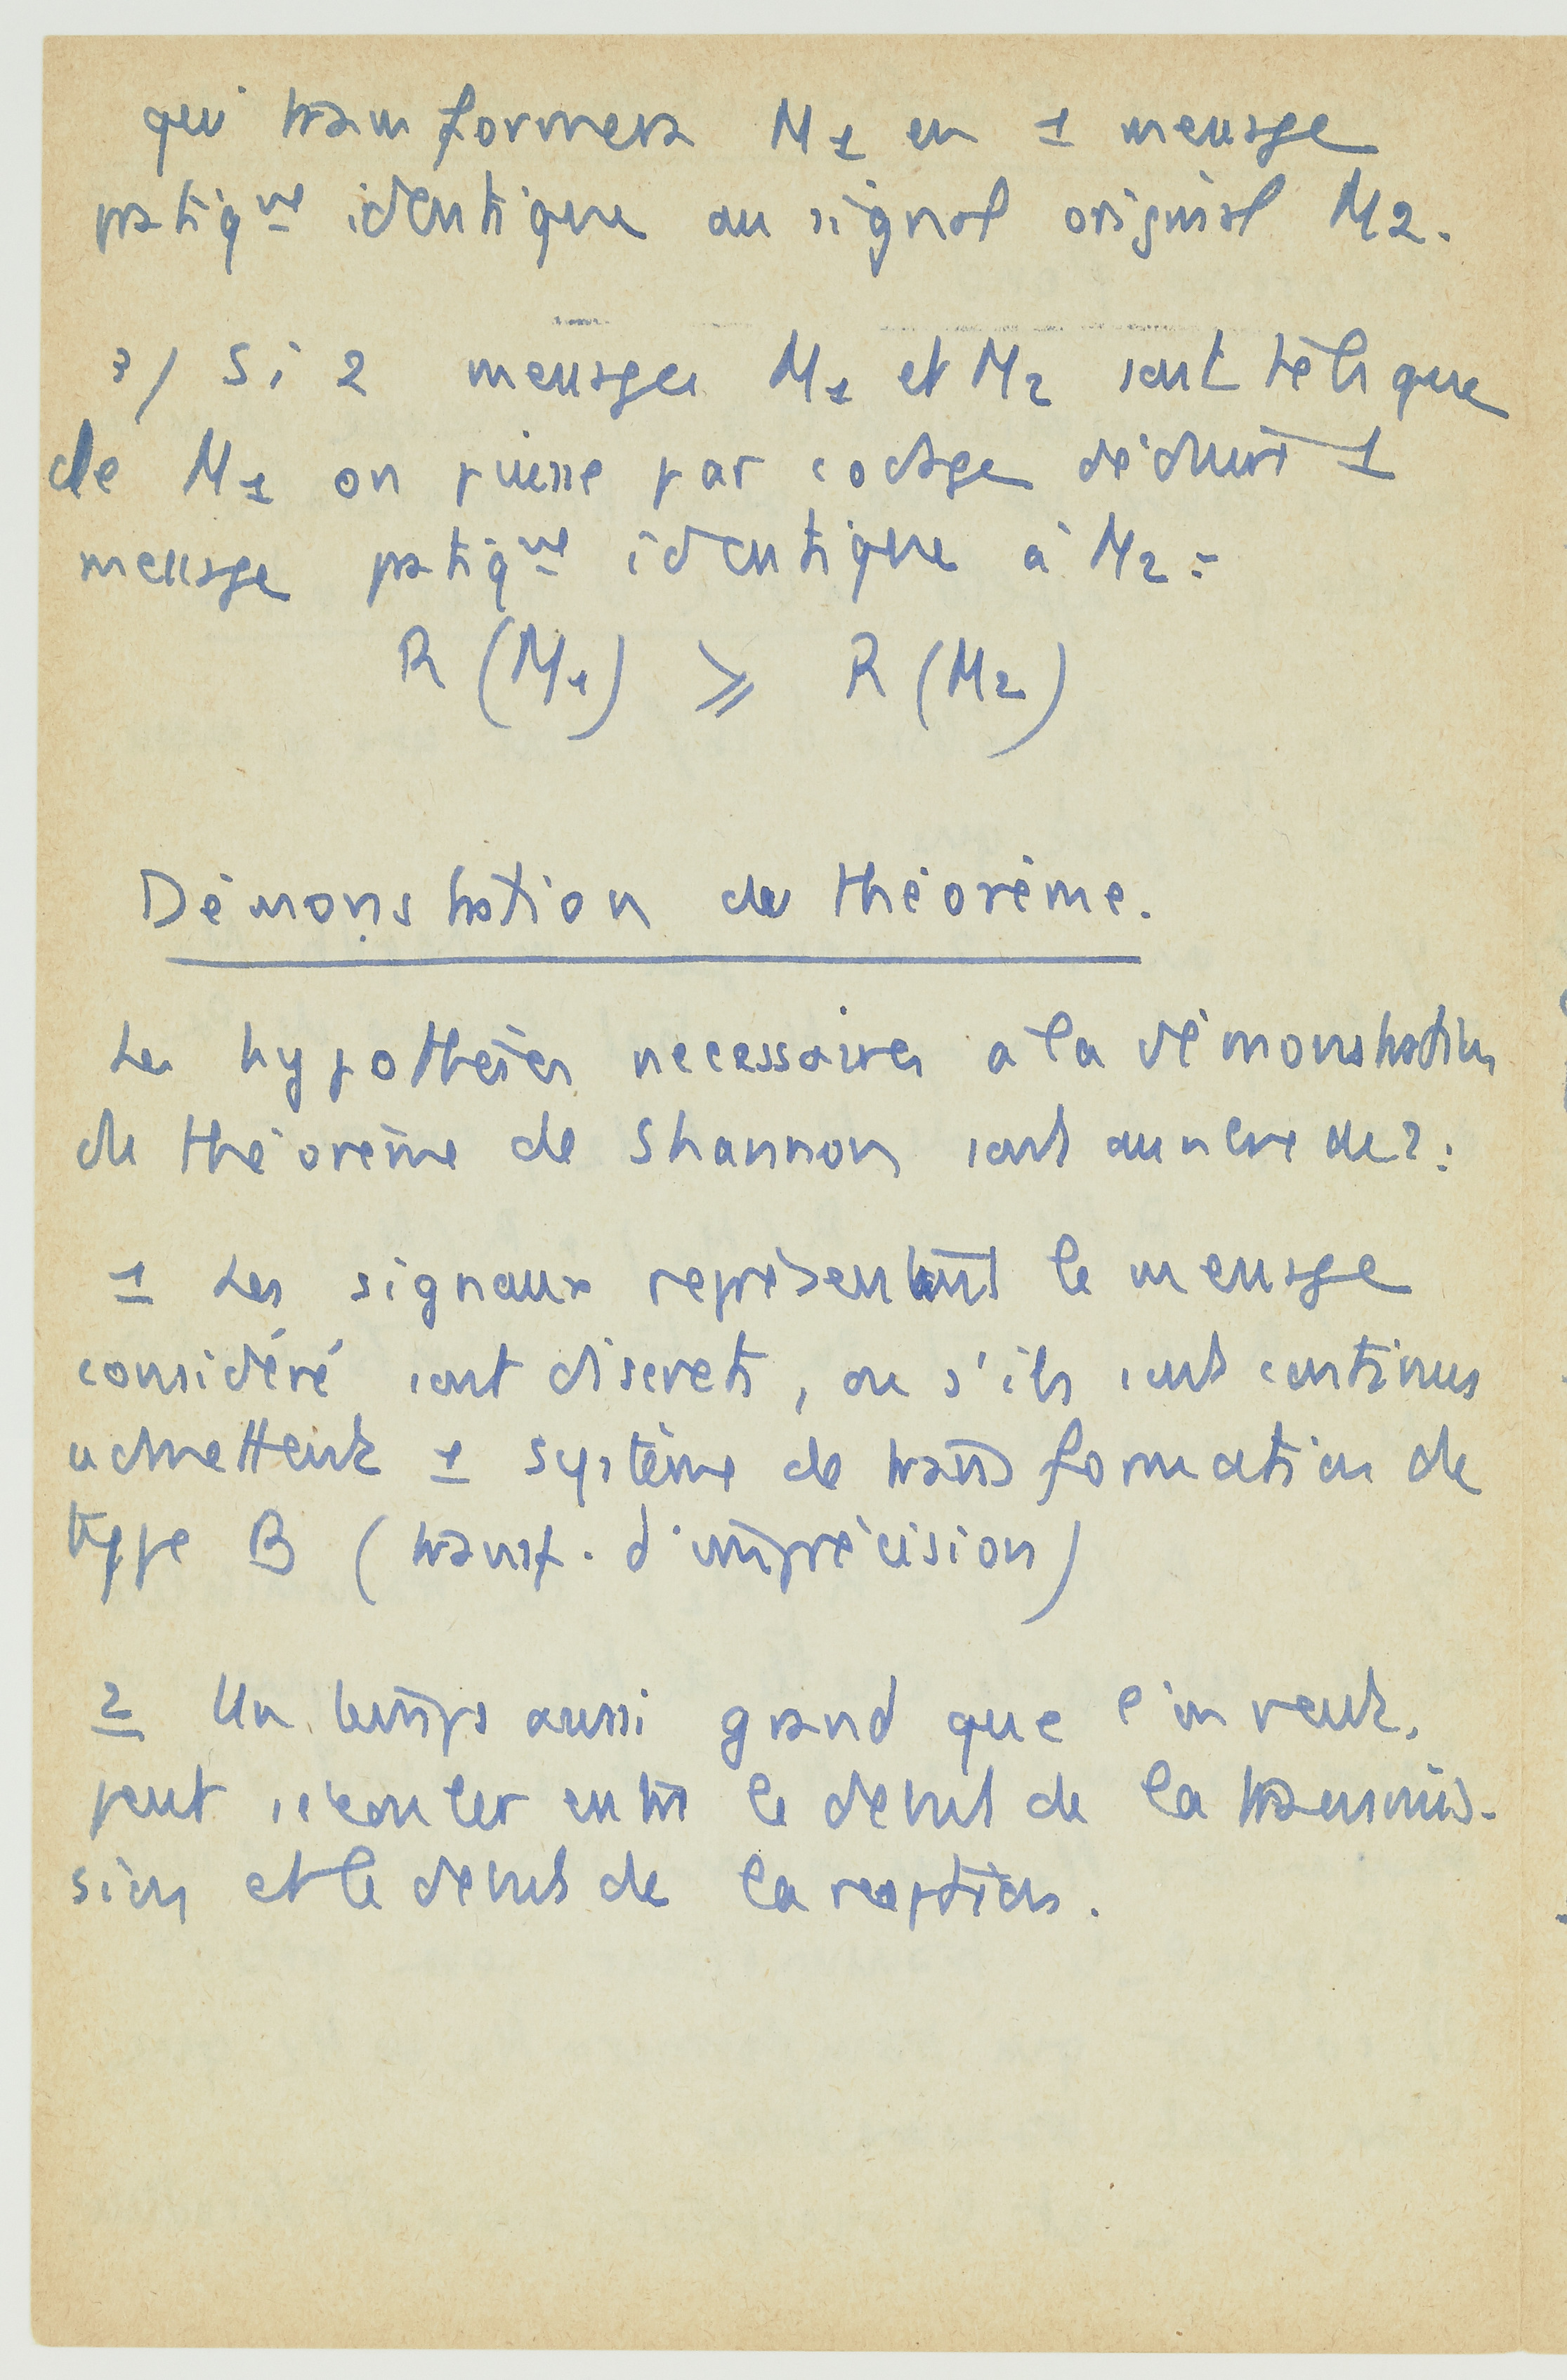 qui transformera M1 en 1 message
pratiqve identique au signal original M2.
3/ Si 2 messages M1 et M2 sont tels que
de M1 on puisse par codage déduire 1
message pratiqve identique à M2 :
R (M1) ⩾ R (M2)
Démonstration du théorème.
Les hypothèses necessaires a la démonstration
du théorème de Shannon sont au nbre de 2 :
1 Les signaux représentant le message
considéré sont discrets, ou s'ils sont continus
admettent 1 système de transformation de
type B (transf. d'imprécision)
2 Un temps aussi grand que l'on veut,
peut s'écouler entre le debut de la transmis-
sion et le debut de la reception.